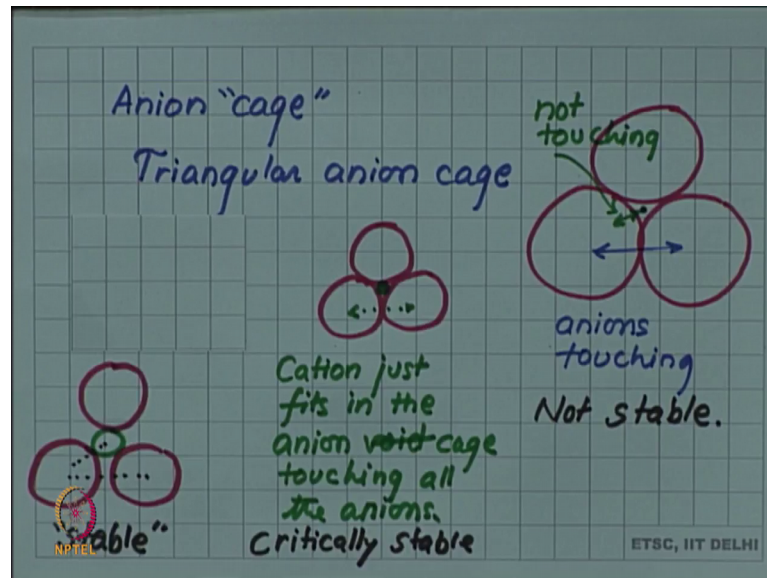 Anion "cage"
Triangular anion cage
not
touching
anions
touching
Not stable.
Cation just
fits in the
anion void cage
touching all
the anions.
Critically stable
"stable"
NPTEL
ETSC, IIT DELHI